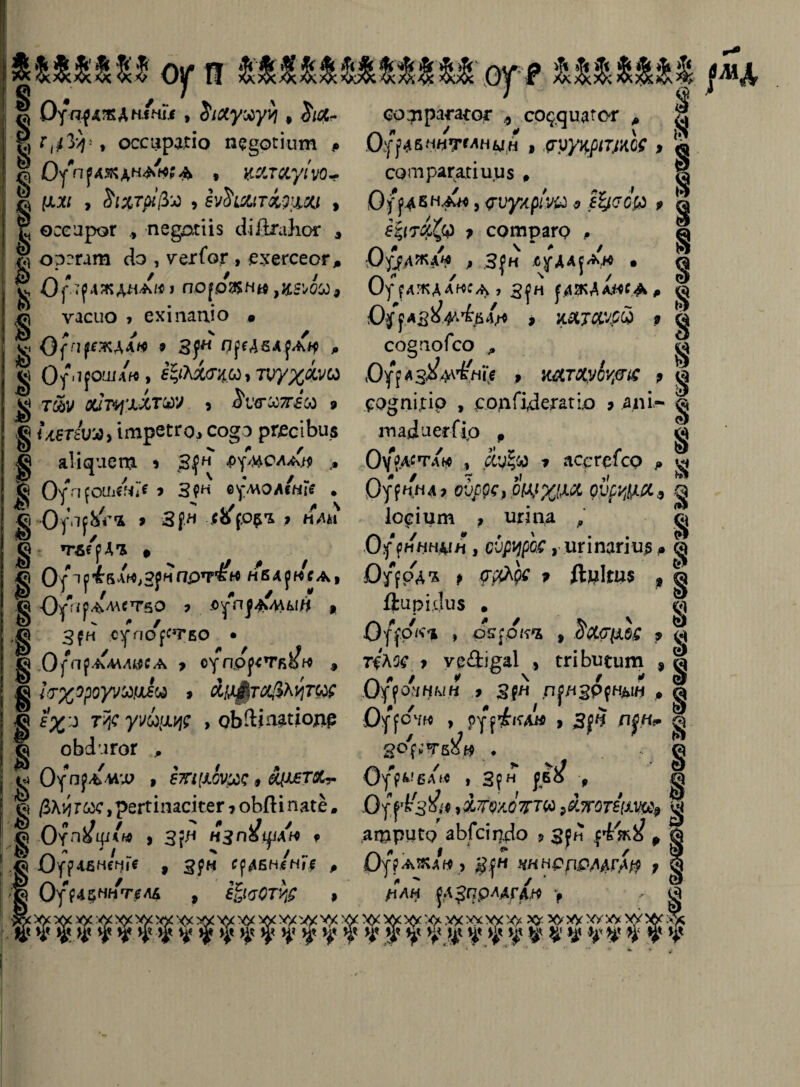 Оу п оу р рмд
Оупражднѣнїе , διαγωγὴ , δια-
occupatio negotium ,
Оупражднѧюсѧ , καταγίνο-
μαι , διατρίβω , ἐνδιαιτάομαι ,
occupor , negotiis distrahor ,
operam do , versor , exerceor,
Оупражднѧю , порожню , κενόω,
vacuo , exinanio .
Оупреждаю , зри предварѧю ,
Оупрошаю , ἐξιλάσκω, τυγχάνω
τῶν αἰτημάτων , δυσωπέω ,
ἱκετεύω, impetro, cogo precibus
aliquem , зри оумолѧю ,
Оупрошенїе , зри оумоленїе .
Оупругъ , зри супругъ , или
твердъ ,
Оупрѣваю, зри потѣю неварюсѧ,
Оупрѧмство , оупрѧмый ,
зри оупорство .
Оупрѧмлюсѧ , оупорствую ,
ἰσχυρογνωμέω , ἀμεταβλήτως
ἔχω τῆς γνώμης , obstinatione
obduror .
Оупрѧмо , ἐπιμόνως, ἀμετα-
βλήτως, pertinaciter, obstinate.
Оупущаю , зри изпущаю ,
Оуравненїе , зри сравненїе ,
Оуравнитель , ἐξισοτὴς ,
comparator , coæquator ,
Оуравнительный , συγκριτικὸς ,
comparatiuus ,
Оуравнѧю, συγκρίνω , ἐξισόω ,
ἐξιτάζω , comparo ,
Оуражаю , зри оударѧю .
Оураждаюсѧ, зри раждаюсѧ,
Оуразумѣваю , καταυρῶ ,
cognosco ,
Оуразумѣнїе , κατανόησις ,
cognitio , consideratio , ani-
maduersio ,
Оурастаю , αὔξω , accresco ,
Оурина, οὖρος, ὀμίχμα οὔρημα,
locium , urina ,
Оуринный , οὐρηρὸς, urinarius,
Оуродъ , σχλὸς , stultus ,
stupidus .
Оурокъ , оброкъ , δασμὸς ,
τέλος , vectigal , tributum ,
Оурочный , зри приговорный ,
Оурочю , оурѣкаю , зри при-
говорствую .
Оурываю , зри рву ,
Оурѣзую, ἀποκόπτω, ἀποτέμνω,
amputo abscindo , зри рѣжу ,
Оурѧжаю , зри чинополагаю ,
или разполагаю ,